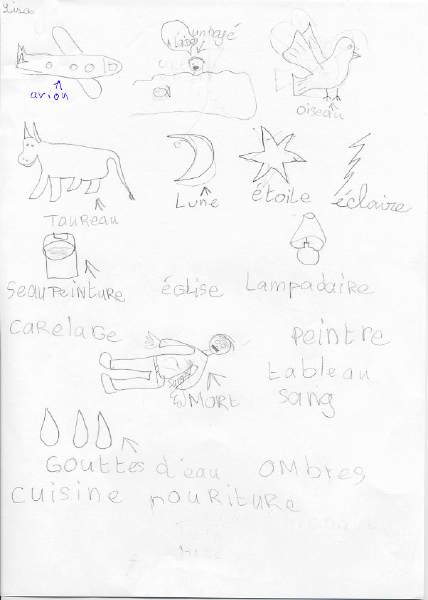 Lisa
avion
oiseau
Taureau
Lune
étoile
éclaire
seau peinture
église
Lampadaire
carelage
peintre
tableau
MORT
sang
Gouttes d'eau
OMBRES
cuisine nouriture